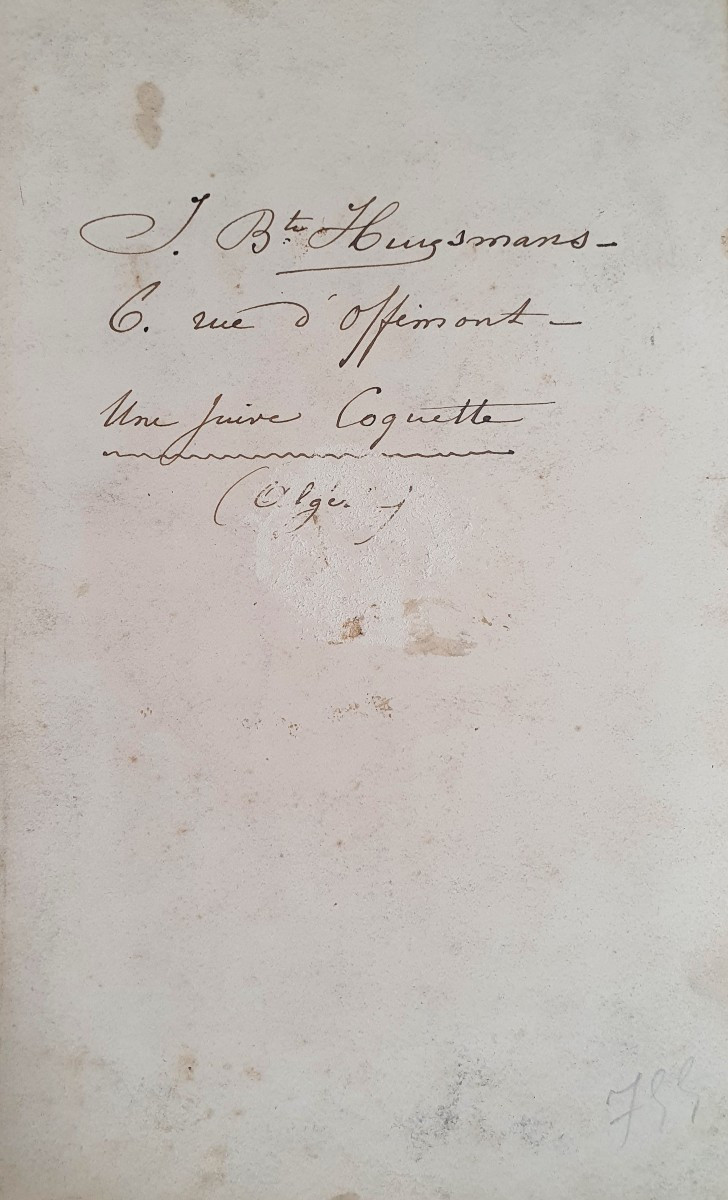 J. Bte. Huysmans -
6. rue d'Offémont -
Une Juive Coquette
(Alger.)